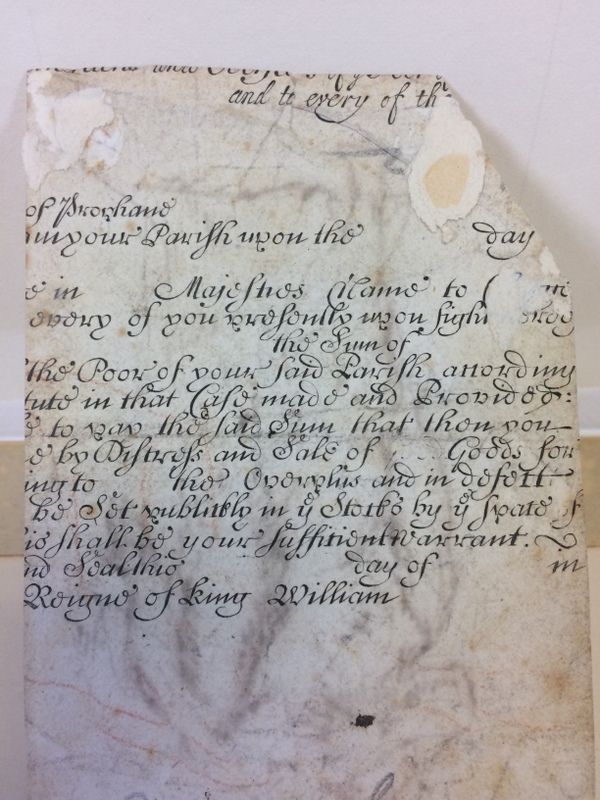 and to every of th
of Prophane
in your Parish upon the day
e in Majesties Name to
every of you presently upon sight
the Sum of
the Poor of your said Parish according
tute in that Case made and Provided:
e to pay the said Sum that then you
e by Distress and Sale of Goods for
ing to the Overplus and in defect
be Set publickly in ye Stocks by ye space of
is shall be your sufficient Warrant.
nd Seal this day of in
Reigne of King William